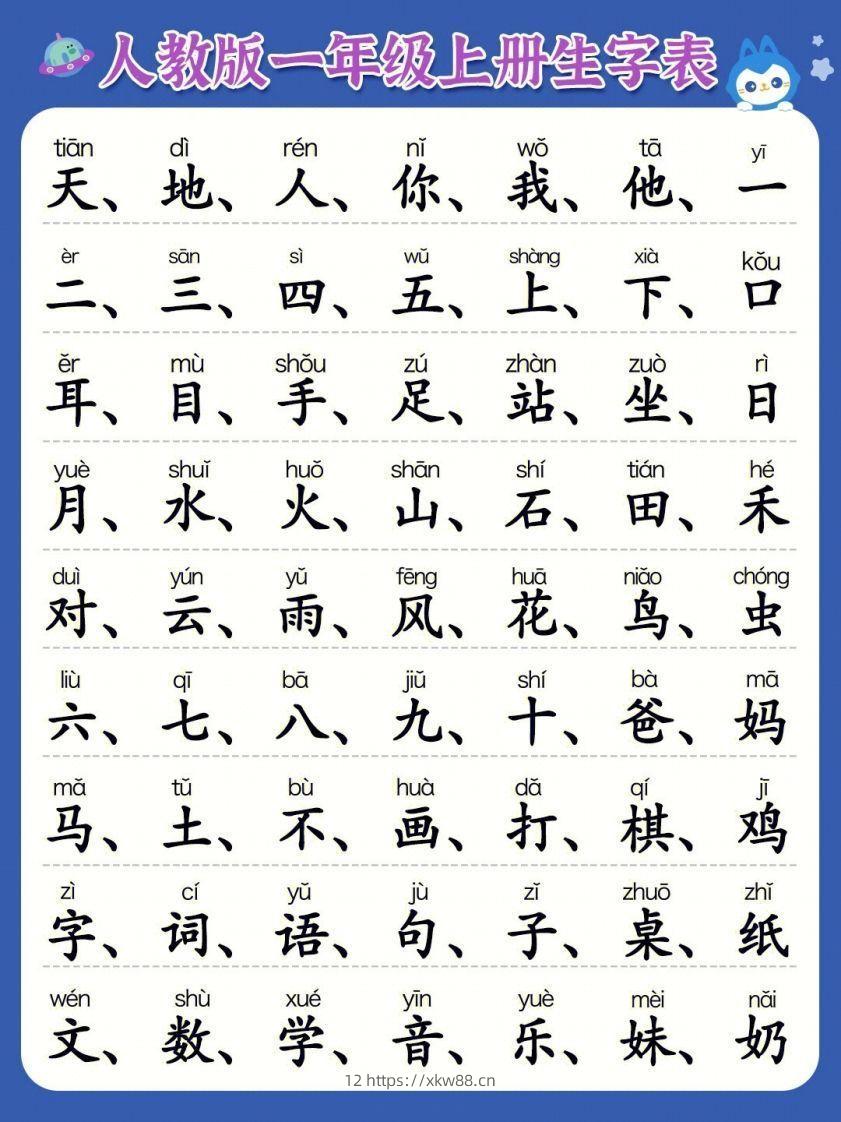 人教版一年级上册生字表
tiān dì rén nǐ wǒ tā yī
天、地、人、你、我、他、一
èr sān sì wǔ shàng xià kǒu
二、三、四、五、上、下、口
ěr mù shǒu zú zhàn zuò rì
耳、目、手、足、站、坐、日
yuè shuǐ huǒ shān shí tián hé
月、水、火、山、石、田、禾
duì yún yǔ fēng huā niǎo chóng
对、云、雨、风、花、鸟、虫
liù qī bā jiǔ shí bà mā
六、七、八、九、十、爸、妈
mǎ tǔ bù huà dǎ qí jī
马、土、不、画、打、棋、鸡
zì cí yǔ jù zǐ zhuō zhǐ
字、词、语、句、子、桌、纸
wén shù xué yīn yuè mèi nǎi
文、数、学、音、乐、妹、奶
12 https://xkw88.cn